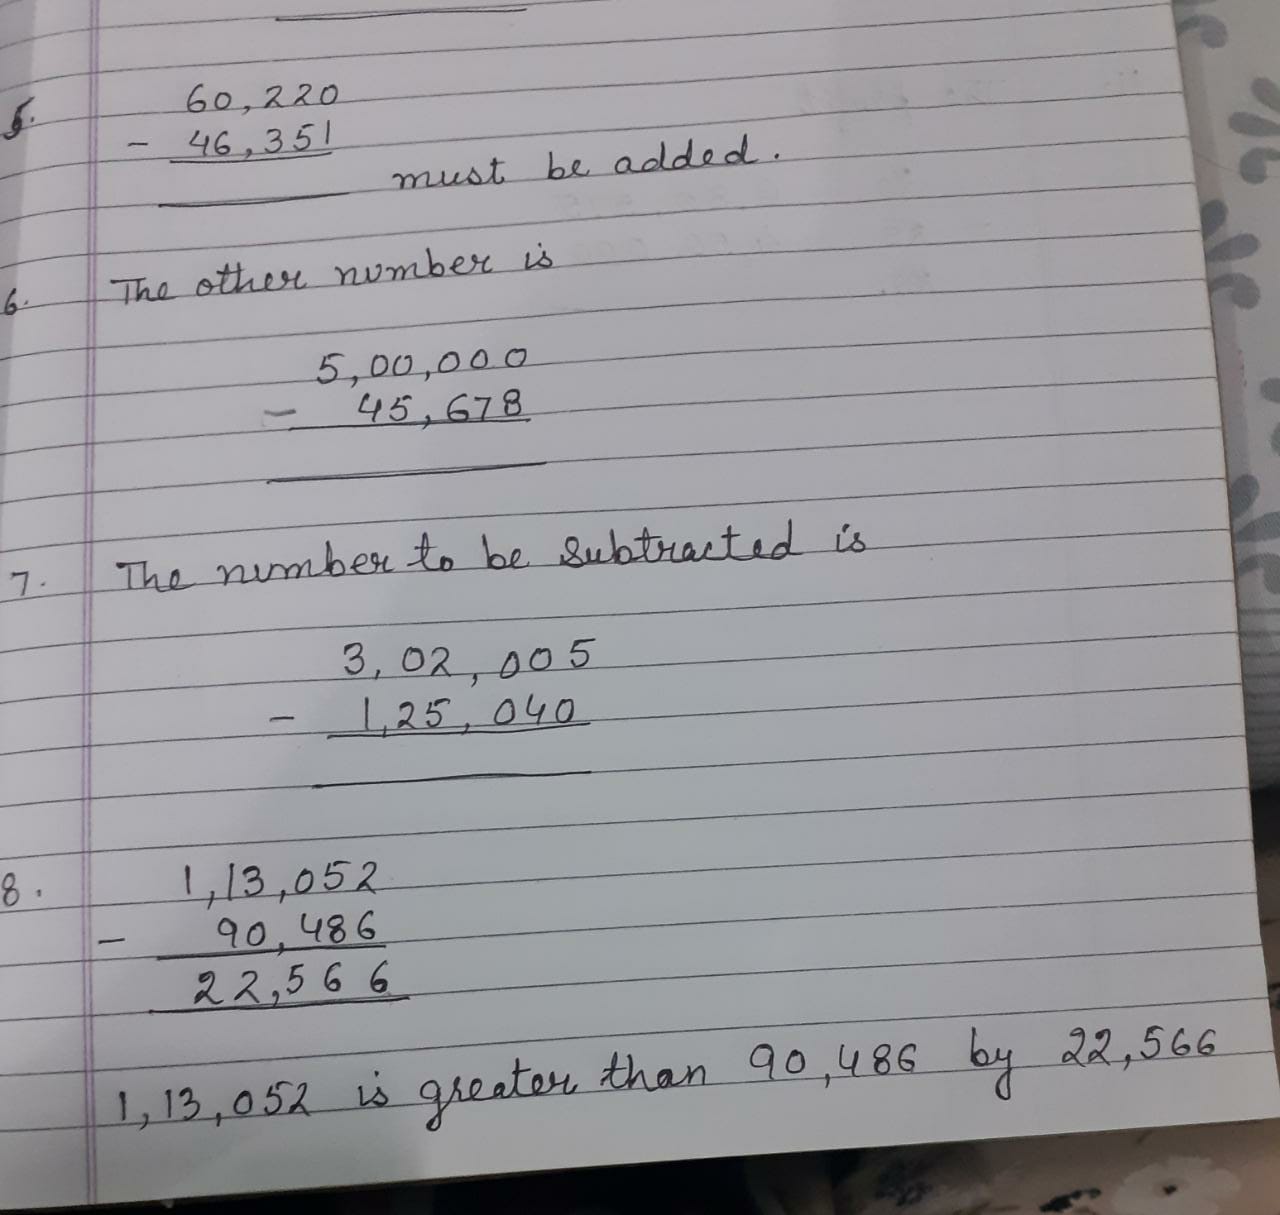 5. 60,220
- 46,351
must be added.
6. The other number is
5,00,000
- 45,678
7. The number to be subtracted is
3,02,005
- 1,25,040
8. 1,13,052
- 90,486
22,566
1,13,052 is greater than 90,486 by 22,566